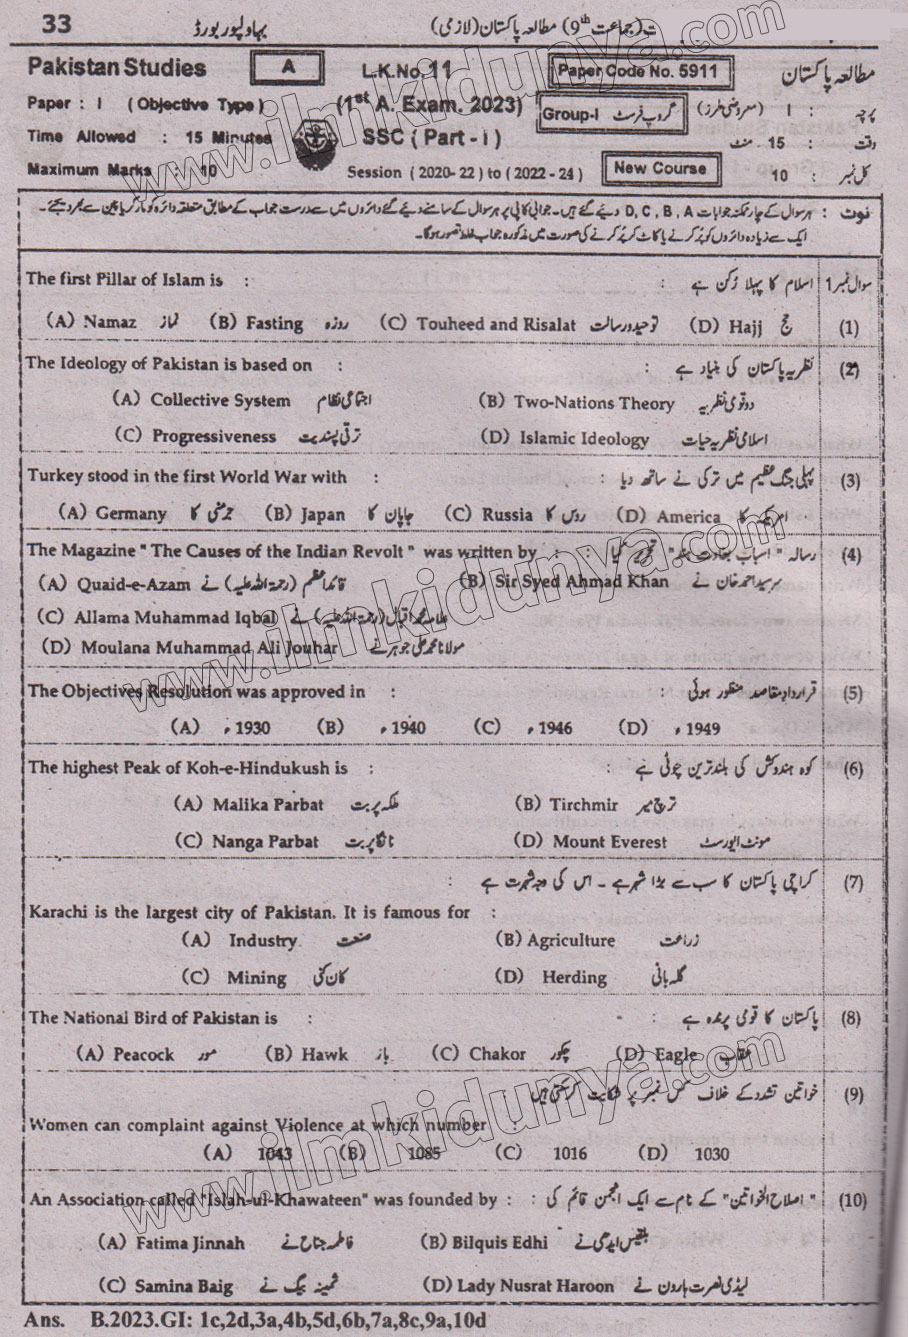 33 بہاولپور بورڈ (جماعت 9th) مطالعہ پاکستان (لازمی)
Pakistan Studies A L.K.No.11 Paper Code No. 5911 مطالعہ پاکستان
Paper : I ( Objective Type ) (1st A. Exam. 2023) Group-I گروپ فرسٹ پرچہ : I (معروضی طرز)
Time Allowed : 15 Minutes SSC ( Part - I ) وقت : 15 منٹ
Maximum Marks : 10 Session (2020-22) to (2022-24) New Course کل نمبر : 10
نوٹ : ہر سوال کے چار ممکنہ جوابات D, C, B, A دیئے گئے ہیں۔ جوابی کاپی پر ہر سوال کے سامنے دیئے گئے دائروں میں سے درست جواب کے مطابق متعلقہ دائرہ کو مارکر یا پین سے بھر دیجئے۔
ایک سے زیادہ دائروں کو پُر کرنے یا کاٹ کر پُر کرنے کی صورت میں مذکورہ جواب غلط تصور ہوگا۔
The first Pillar of Islam is : اسلام کا پہلا رُکن ہے : سوال نمبر 1
(A) Namaz نماز (B) Fasting روزہ (C) Touheed and Risalat توحید و رسالت (D) Hajj حج (1)
The Ideology of Pakistan is based on : نظریہ پاکستان کی بنیاد ہے : (2)
(A) Collective System اجتماعی نظام (B) Two-Nations Theory دو قومی نظریہ
(C) Progressiveness ترقی پسندیت (D) Islamic Ideology اسلامی نظریہ حیات
Turkey stood in the first World War with : پہلی جنگ عظیم میں ترکی نے ساتھ دیا : (3)
(A) Germany جرمنی کا (B) Japan جاپان کا (C) Russia روس کا (D) America امریکہ کا
The Magazine " The Causes of the Indian Revolt " was written by : رسالہ " اسباب بغاوت ہند" تحریر کیا : (4)
(A) Quaid-e-Azam قائداعظم (رحمۃ اللہ علیہ) نے (B) Sir Syed Ahmad Khan سرسید احمد خان نے
(C) Allama Muhammad Iqbal علامہ محمد اقبال (رحمۃ اللہ علیہ) نے
(D) Moulana Muhammad Ali Jouhar مولانا محمد علی جوہر نے
The Objectives Resolution was approved in : قرارداد مقاصد منظور ہوئی : (5)
(A) ء 1930 (B) ء 1940 (C) ء 1946 (D) ء 1949
The highest Peak of Koh-e-Hindukush is : کوہ ہندوکش کی بلند ترین چوٹی ہے : (6)
(A) Malika Parbat ملکہ پربت (B) Tirchmir ترچ میر
(C) Nanga Parbat نانگا پربت (D) Mount Everest مونٹ ایورسٹ
کراچی پاکستان کا سب سے بڑا شہر ہے ۔ اس کی وجہ شہرت ہے : (7)
Karachi is the largest city of Pakistan. It is famous for :
(A) Industry صنعت (B) Agriculture زراعت
(C) Mining کان کنی (D) Herding گلہ بانی
The National Bird of Pakistan is : پاکستان کا قومی پرندہ ہے : (8)
(A) Peacock مور (B) Hawk باز (C) Chakor چکور (D) Eagle عقاب
خواتین تشدد کے خلاف کس نمبر پر شکایت کرسکتی ہیں (9)
Women can complaint against Violence at which number :
(A) 1043 (B) 1085 (C) 1016 (D) 1030
An Association called "Islah-ul-Khawateen" was founded by : " اصلاح الخواتین" کے نام سے ایک انجمن قائم کی : (10)
(A) Fatima Jinnah فاطمہ جناح نے (B) Bilquis Edhi بلقیس ایدھی نے
(C) Samina Baig ثمینہ بیگ نے (D) Lady Nusrat Haroon لیڈی نصرت ہارون نے
Ans. B.2023.GI: 1c,2d,3a,4b,5d,6b,7a,8c,9a,10d
www.ilmkidunya.com
www.ilmkidunya.com
www.ilmkidunya.com